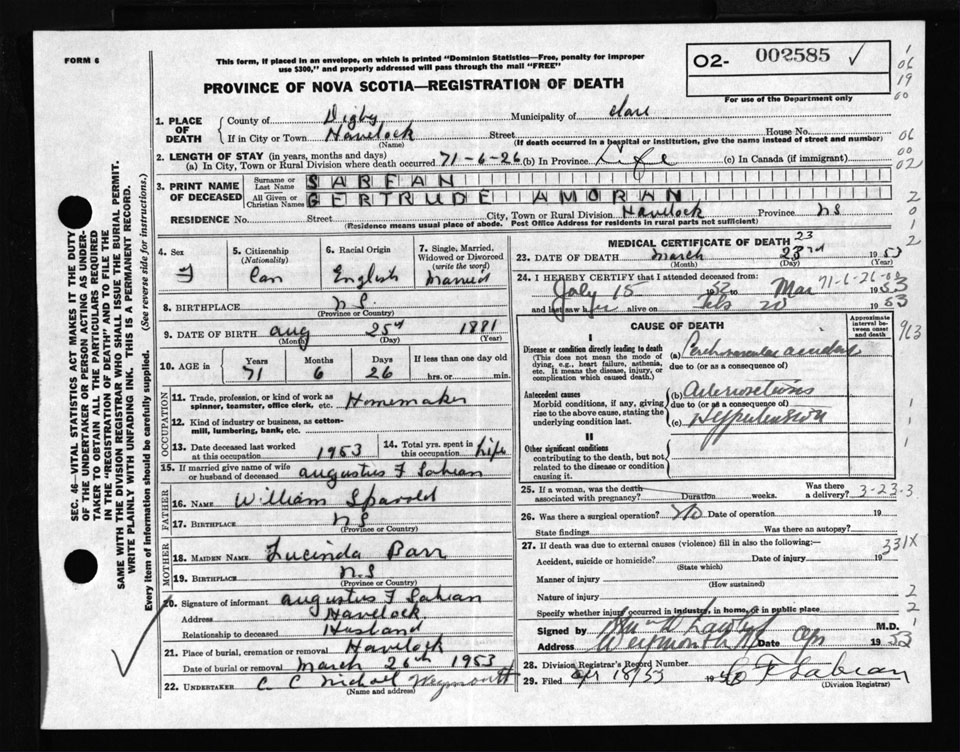 FORM 6
This form, if placed in an envelope, on which is printed "Dominion Statistics—Free, penalty for improper
use $300," and properly addressed will pass through the mail "FREE"
PROVINCE OF NOVA SCOTIA—REGISTRATION OF DEATH
02- 002585 ✓
For use of the Department only
1. PLACE OF DEATH
County of Digby Municipality of Clare
If in City or Town Havelock Street House No.
(Name) (If death occurred in a hospital or institution, give the name instead of street and number)
2. LENGTH OF STAY (in years, months and days)
(a) In City, Town or Rural Division where death occurred 71-6-26 (b) In Province Life (c) In Canada (if immigrant)
3. PRINT NAME OF DECEASED
Surname or Last Name SABEAN
All Given or Christian Names GERTRUDE AMORAN
RESIDENCE No. Street City, Town or Rural Division Havelock Province NS
(Residence means usual place of abode. Post Office Address for residents in rural parts not sufficient)
4. Sex F
5. Citizenship (Nationality) Can
6. Racial Origin English
7. Single, Married, Widowed or Divorced (write the word) Married
8. BIRTHPLACE N.S.
(Province or Country)
9. DATE OF BIRTH Aug 25 1881
(Month) (Day) (Year)
10. AGE in Years 71 Months 6 Days 26 If less than one day old
hrs. or min.
OCCUPATION
11. Trade, profession, or kind of work as spinner, teamster, office clerk, etc. Homemaker
12. Kind of industry or business, as cotton-mill, lumbering, bank, etc.
13. Date deceased last worked at this occupation 1953
14. Total yrs. spent in this occupation Life
15. If married give name of wife or husband of deceased Augustus F Sabean
FATHER
16. NAME William
17. BIRTHPLACE NS
(Province or Country)
MOTHER
18. MAIDEN NAME Lucinda Barr
19. BIRTHPLACE N.S
(Province or Country)
20. Signature of informant Augustus F Sabean
Address Havelock
Relationship to deceased Husband
21. Place of burial, cremation or removal Havelock
Date of burial or removal March 26th 1953
22. UNDERTAKER C C Weymouth
(Name and address)
MEDICAL CERTIFICATE OF DEATH
23
23. DATE OF DEATH March 23rd 1953
(Month) (Day) (Year)
71-6-26
24. I HEREBY CERTIFY that I attended deceased from:
July 15 1952 to Mar 1953
and last saw h alive on Feb 20 1953
CAUSE OF DEATH
Approximate interval between onset and death
I
Disease or condition directly leading to death
(This does not mean the mode of dying, e.g., heart failure, asthenia, etc. It means the disease, injury, or complication which caused death.)
(a)
due to (or as a consequence of)
Antecedent causes
Morbid conditions, if any, giving rise to the above cause, stating the underlying condition last.
(b)
due to (or as a consequence of)
(c) Hypertension
II
Other significant conditions
contributing to the death, but not related to the disease or condition causing it.
25. If a woman, was the death associated with pregnancy? Duration weeks. Was there a delivery? 3-23-3
26. Was there a surgical operation? No Date of operation 19
State findings Was there an autopsy?
27. If death was due to external causes (violence) fill in also the following:— 331X
Accident, suicide or homicide? Date of injury 19
(State which)
Manner of injury
(How sustained)
Nature of injury
Specify whether injury occurred in industry, in home, or in public place
Signed by M.D.
Address Weymouth Date Apr 1953
28. Division Registrar's Record Number
29. Filed Apr 18/53 19 F Sabean
(Division Registrar)
SEC. 46—VITAL STATISTICS ACT MAKES IT THE DUTY
OF THE UNDERTAKER OR PERSON ACTING AS UNDER-
TAKER TO OBTAIN ALL THE PARTICULARS REQUIRED
IN THE "REGISTRATION OF DEATH" AND TO FILE THE
SAME WITH THE DIVISION REGISTRAR WHO SHALL ISSUE THE BURIAL PERMIT.
WRITE PLAINLY WITH UNFADING INK. THIS IS A PERMANENT RECORD.
Every item of information should be carefully supplied. (See reverse side for instructions.)